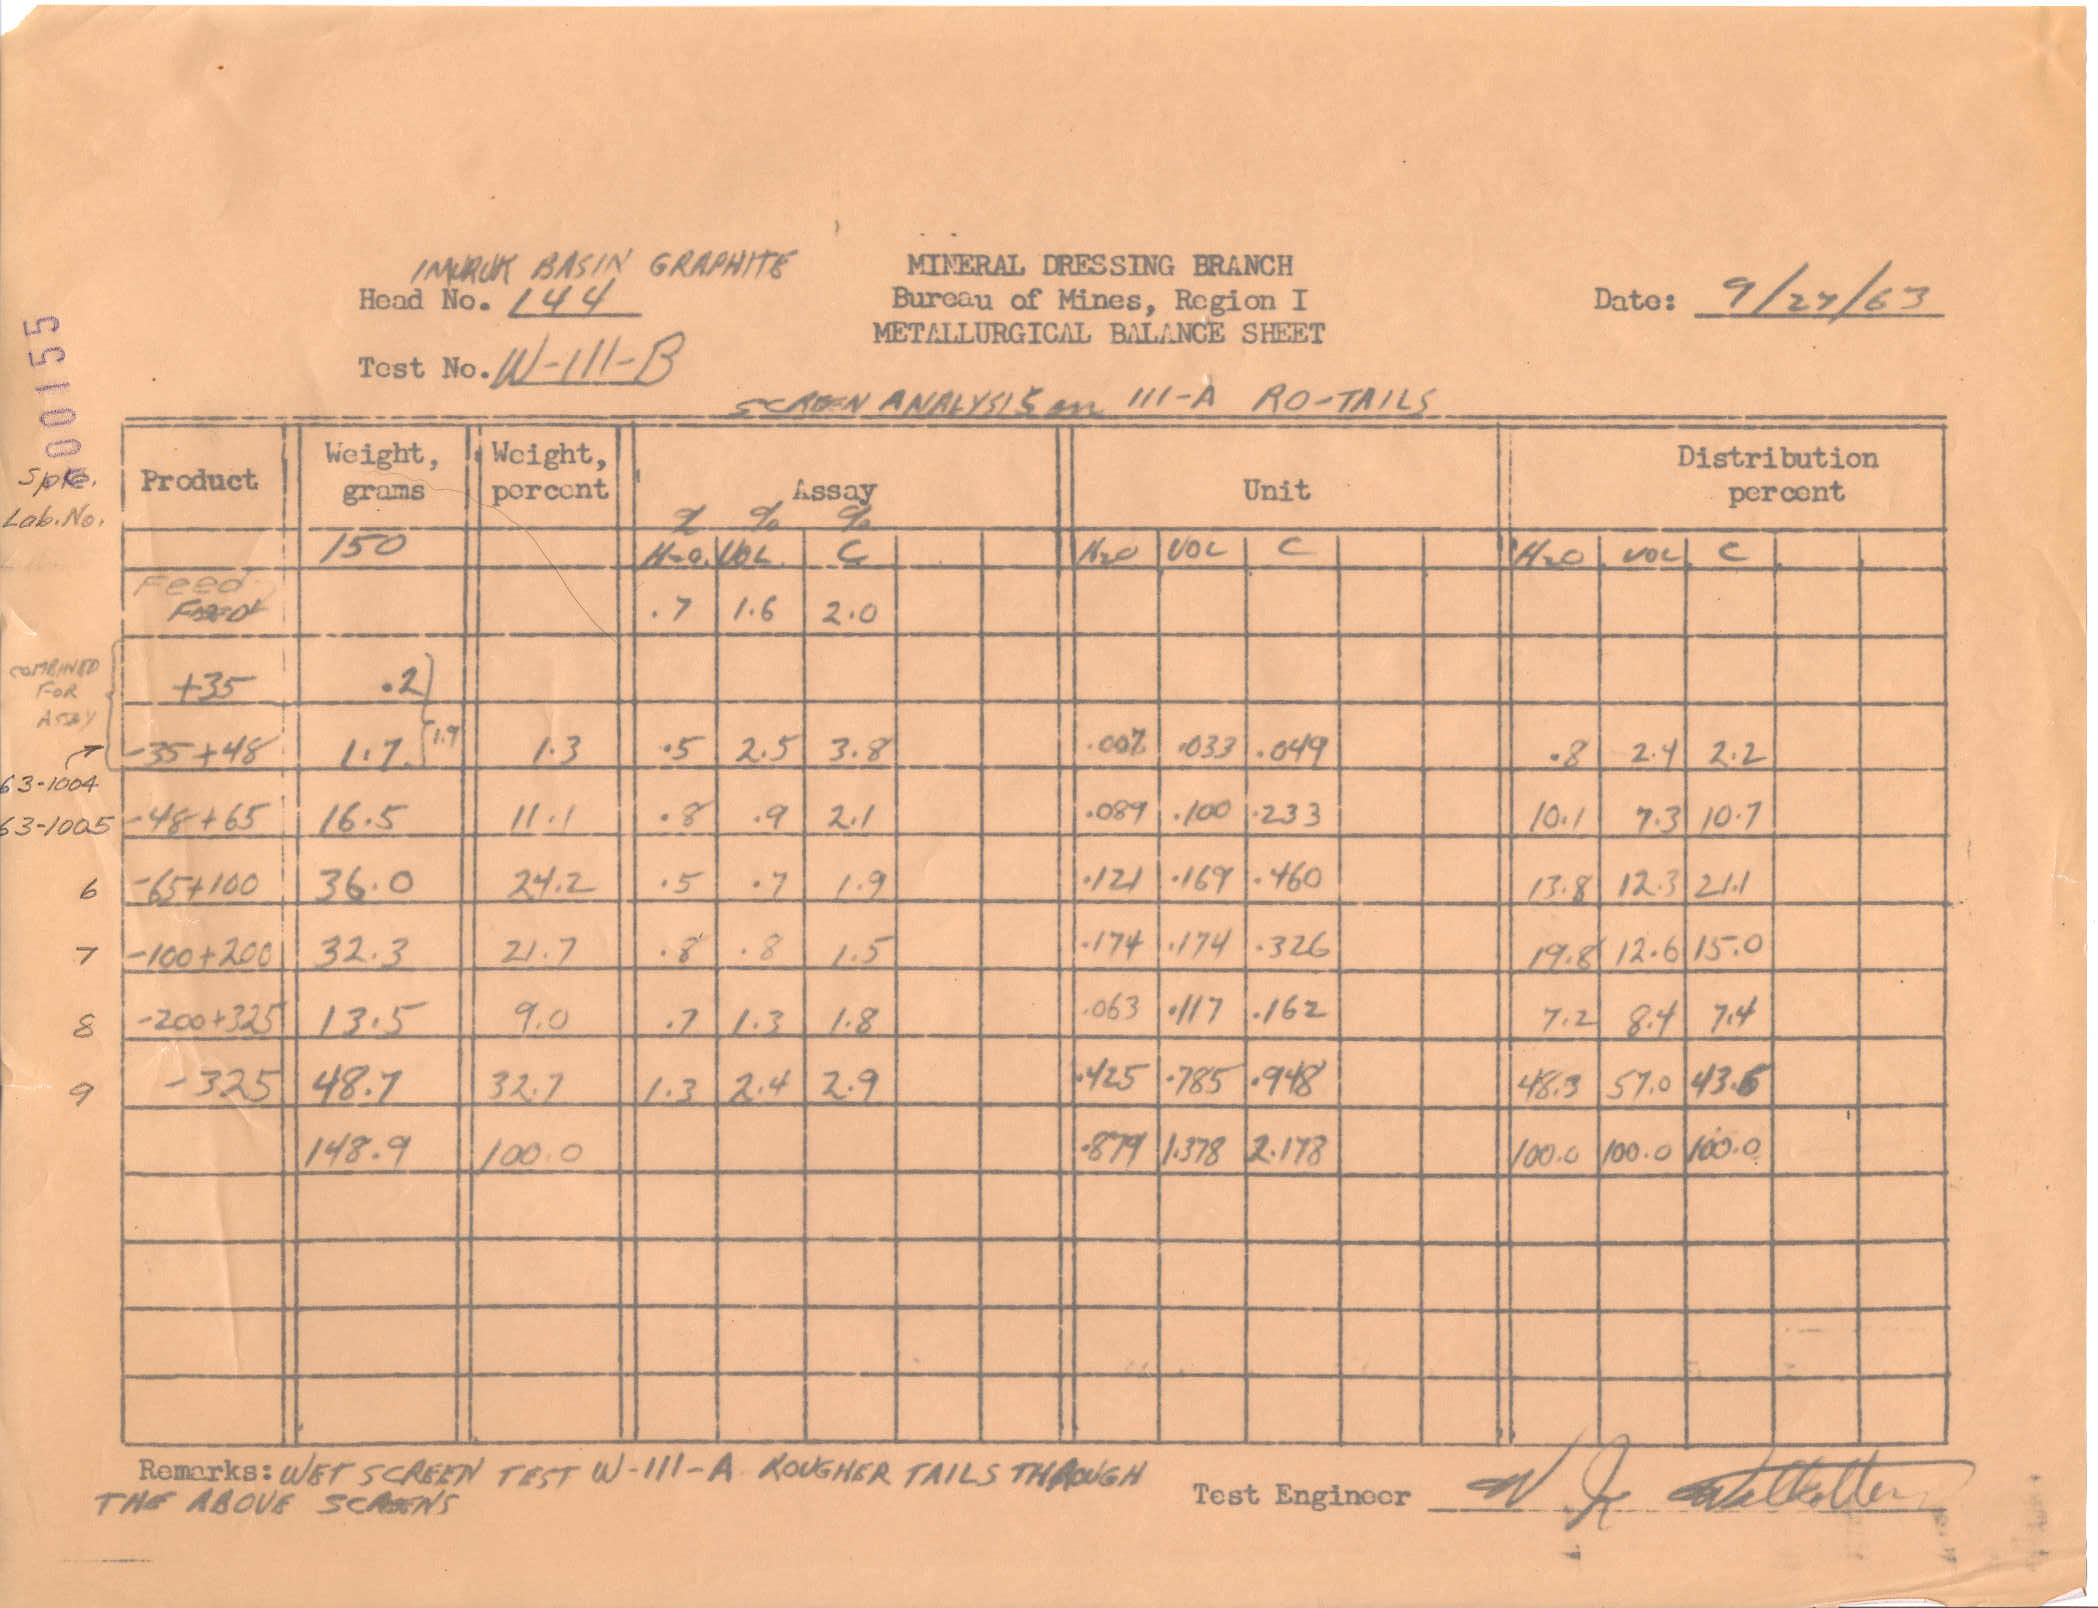 IMURUK BASIN GRAPHITE
MINERAL DRESSING BRANCH
Head No. 144
Bureau of Mines, Region I
Date: 9/27/63
METALLURGICAL BALANCE SHEET
Test No. W-111-B
SCREEN ANALYSIS on 111-A RO-TAILS
00155
Sple. Lab. No.
Product | Weight, grams | Weight, percent | Assay | Unit | Distribution percent
% % %
150 | H2O | VOL | C | H2O | VOL | C | H2O | VOL | C
Feed
FEED | .7 | 1.6 | 2.0
COMBINED FOR ASSAY
+35 | .2
-35+48 | 1.7 | 1.9 | 1.3 | .5 | 2.5 | 3.8 | .007 | .033 | .049 | .8 | 2.4 | 2.2
63-1004
63-1005 | -48+65 | 16.5 | 11.1 | .8 | .9 | 2.1 | .089 | .100 | .233 | 10.1 | 7.3 | 10.7
6 | -65+100 | 36.0 | 24.2 | .5 | .7 | 1.9 | .121 | .169 | .460 | 13.8 | 12.3 | 21.1
7 | -100+200 | 32.3 | 21.7 | .8 | .8 | 1.5 | .174 | .174 | .326 | 19.8 | 12.6 | 15.0
8 | -200+325 | 13.5 | 9.0 | .7 | 1.3 | 1.8 | .063 | .117 | .162 | 7.2 | 8.4 | 7.4
9 | -325 | 48.7 | 32.7 | 1.3 | 2.4 | 2.9 | .425 | .785 | .948 | 48.3 | 57.0 | 43.6
148.9 | 100.0 | .879 | 1.378 | 2.178 | 100.0 | 100.0 | 100.0
Remarks: WET SCREEN TEST W-111-A ROUGHER TAILS THROUGH
THE ABOVE SCREENS
Test Engineer W